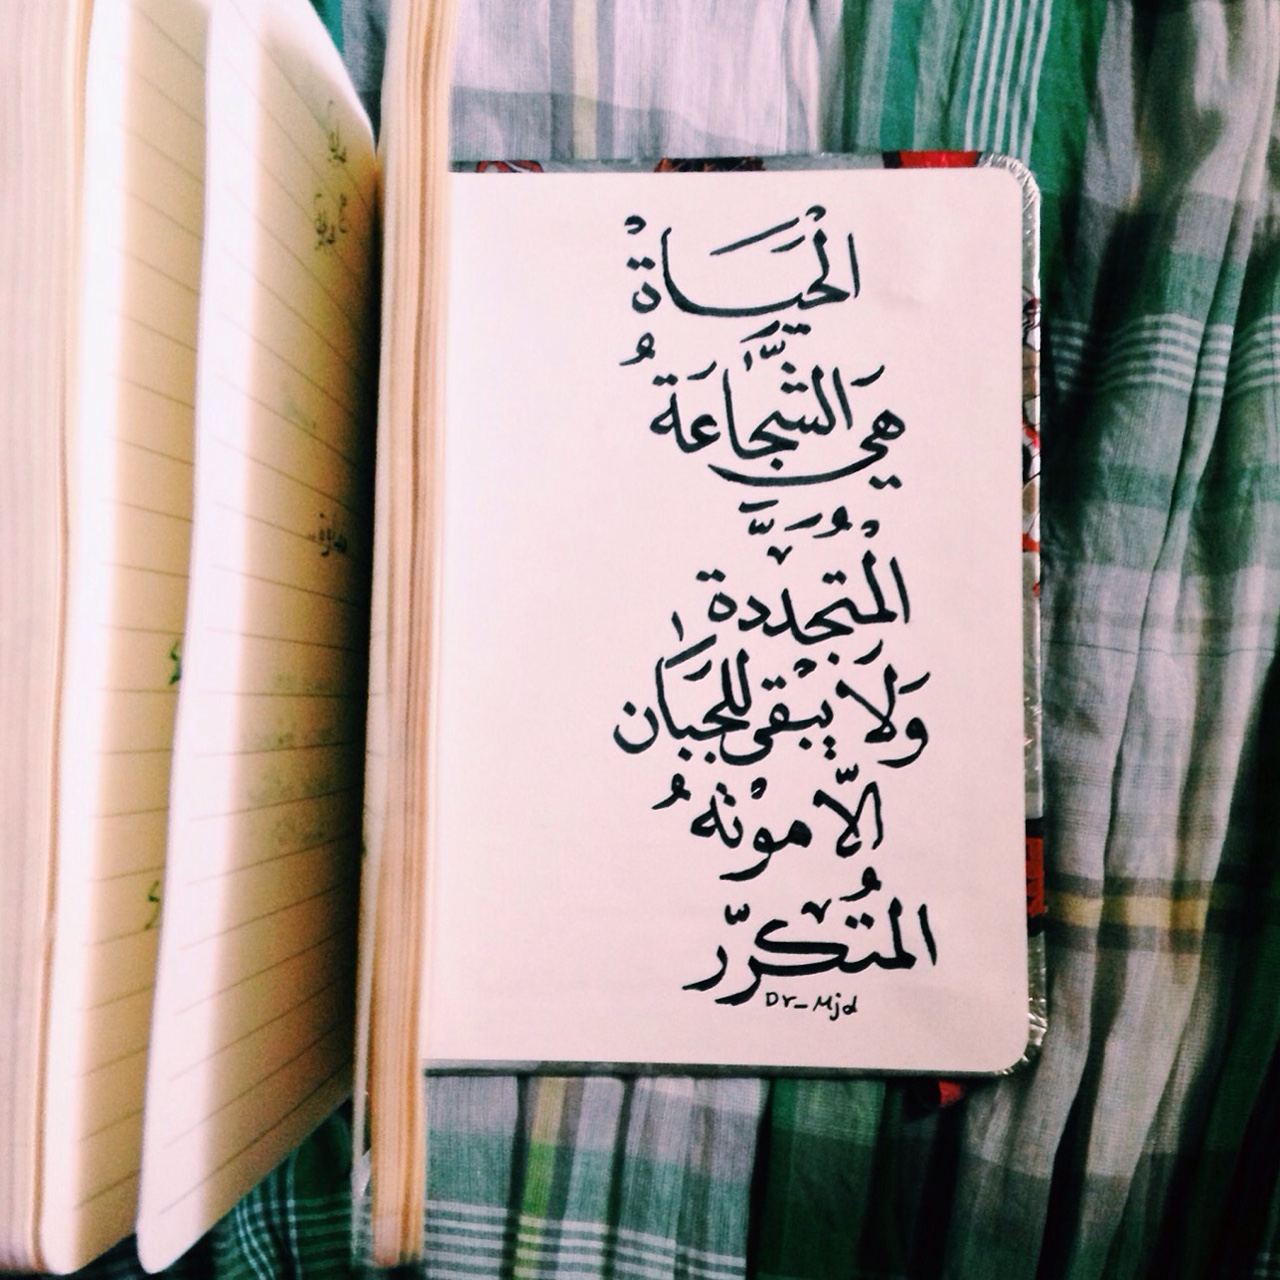 الْحَيَاةْ
هي الشَّجَاعَةُ
الْمُتَجَدِّدَة
وَلَا يَبْقى للجَبَان
الّا موْتهُ
المُتكرّر
Dr_Mjd